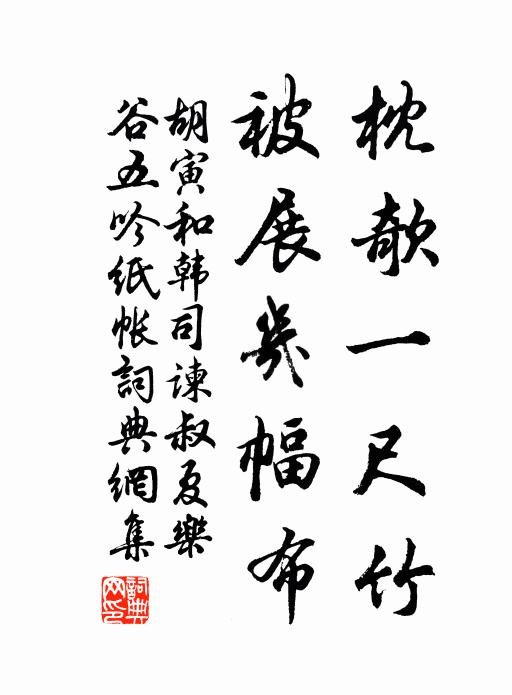 枕欹一尺竹
被展幾幅布
胡寅和韩司諫叔夏樂
谷五吟纸帐詞典網集
詞典网印